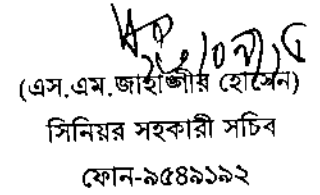 (এস.এম.জাহাঙ্গীর হোসেন)
সিনিয়র সহকারী সচিব
ফোন-৯৫৪৯১৯২